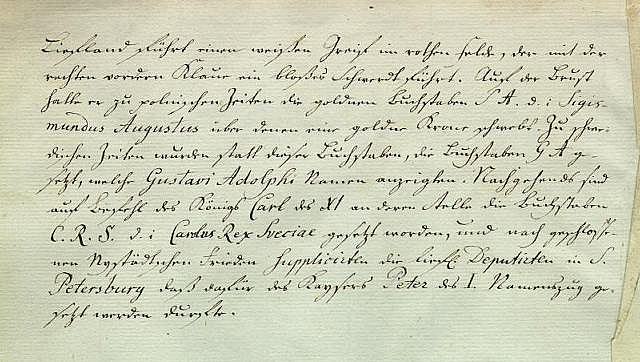 Liefland führt einen weißen Greif im rothen felde, der mit der
rechten vordern Klaue ein bloßes Schwerdt führt. Auf der Brust
hatte er zu polnischen Zeiten die goldnen Buchstaben S A. d. i Sigis-
mundus Augustus über denen eine goldne Krone schwebt. Zu schwe-
dischen Zeiten wurden statt dieser Buchstaben, die Buchstaben G A ge-
setzt, welche Gustavi Adolphi Namen anzeigten. Nachgehends sind
auf Befehl des Königs Carl des XI an deren stelle die Buchstaben
C. R. S. d. i Carolus Rex Sveciae gesetzt worden, und nach geschlosse-
nen Nystädtschen Frieden supplicirten die lieff. Deputirten in S.
Petersburg daß dafür des Kaysers Peter des I. Namenszug ge-
setzt werden durfte.